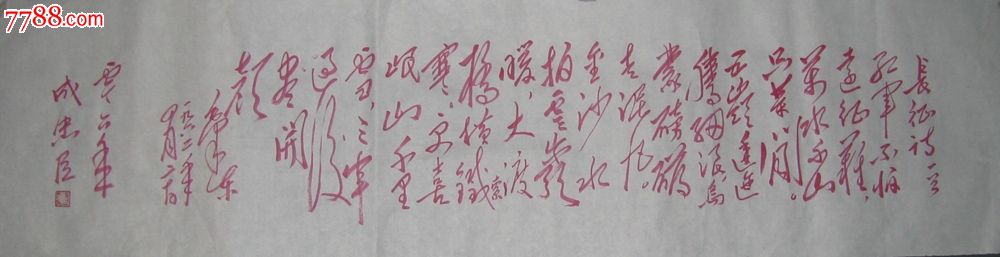 7788.com
長征詩一
紅軍不怕
遠征難，
萬水千山
只等閒。
五嶺逶迤
騰細浪，烏
蒙磅礴
走泥丸。
金沙水
拍雲崖
暖，大渡
橋橫鐵索
寒。更喜
岷山千里
雪，三軍
過後
盡開
顏
毛澤東
六年
成忠臣